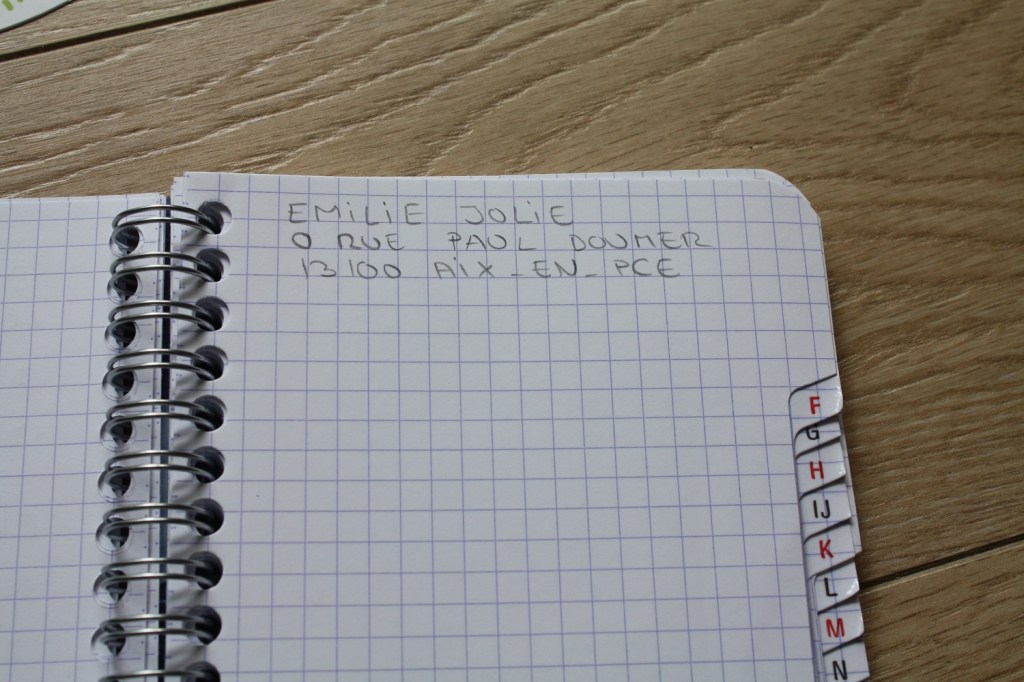 EMILIE JOLIE
0 RUE PAUL DOUMER
13100 AIX-EN-PCE
F
G
H
IJ
K
L
M
N